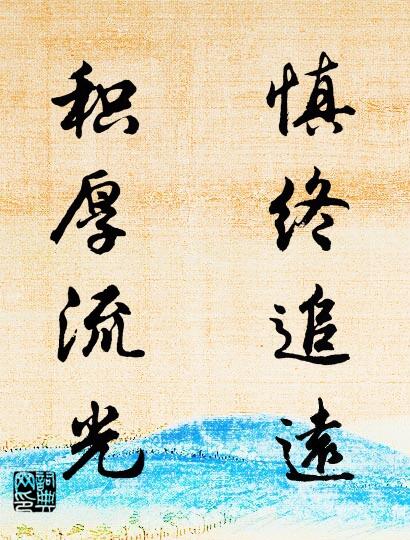 慎终追遠
积厚流光
词典网